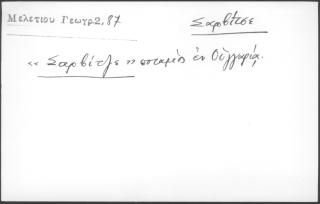 Μελετίου Γεωγρ2,87
Σαρβίτσε
«Σαρβίτζε» ποταμὸς ἐν Οὑγγαρίᾳ.